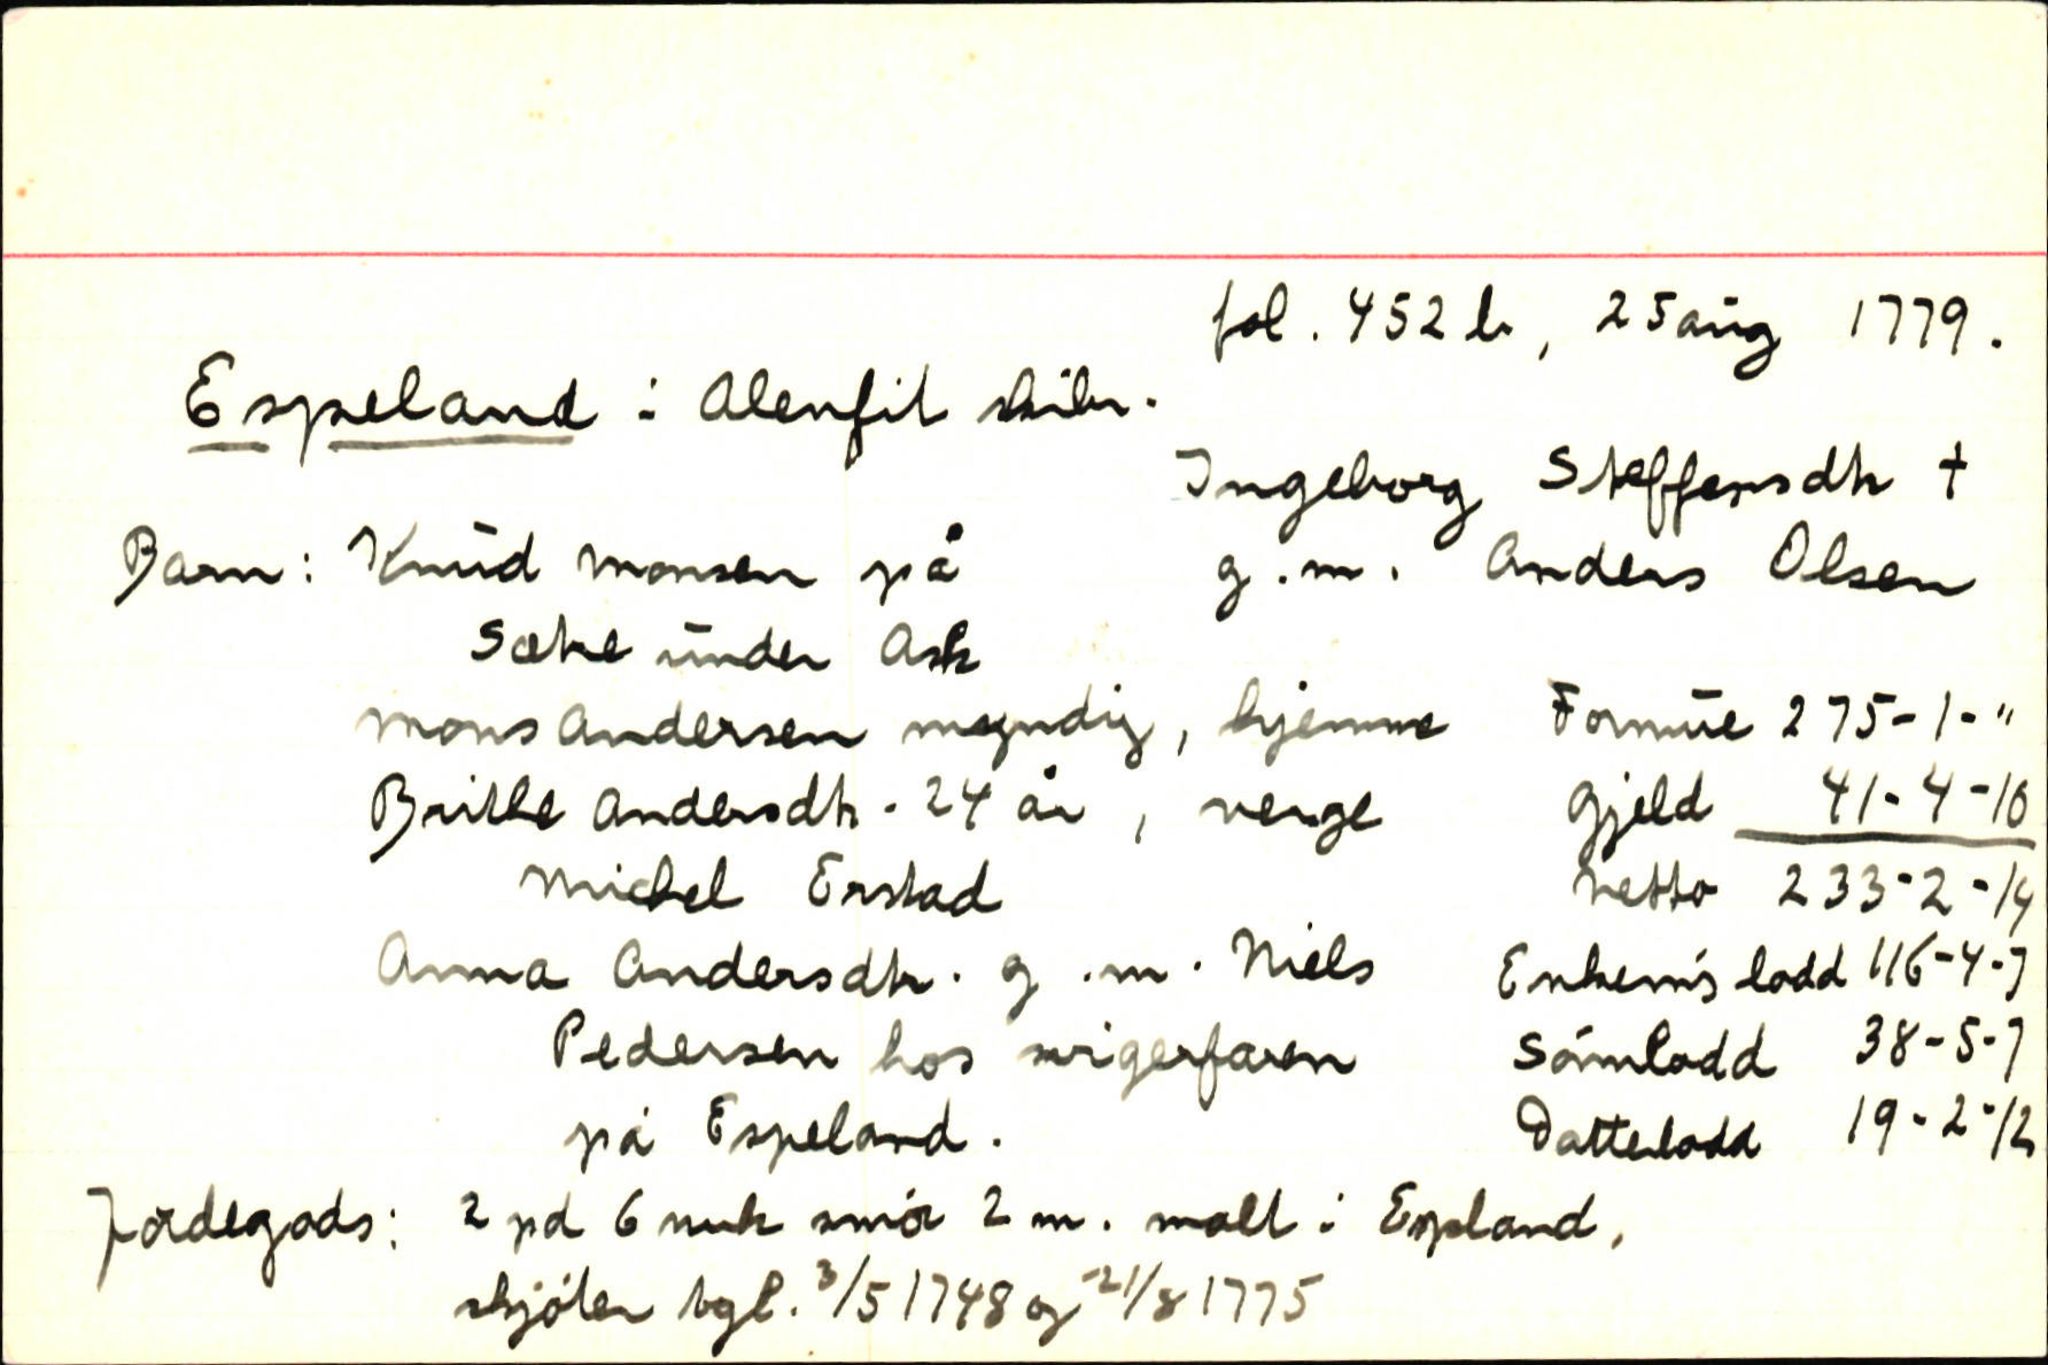 fol. 452 b, 25 aug 1779.
Espeland i Alenfit skibr.
Ingeborg Steffensdtr †
Barn: Knud Monsen på
g.m. Anders Olsen
Sætre under Ask
Mons Andersen myndig, hjemme
Formue 275-1-"
Brithe Andersdtr. 24 år, verge
Gjeld 41-4-10
Michel Erstad
Netto 233-2-14
Anna Andersdtr. g.m. Niels
Enkem's lodd 116-4-7
Pedersen hos svigerfaren
Sönnlodd 38-5-7
på Espeland.
Datterlodd 19-2-12
Jordegods: 2 pd 6 mrk smör 2 m. malt i Espland,
skjöter tgl. 3/5 1748 og 21/8 1775